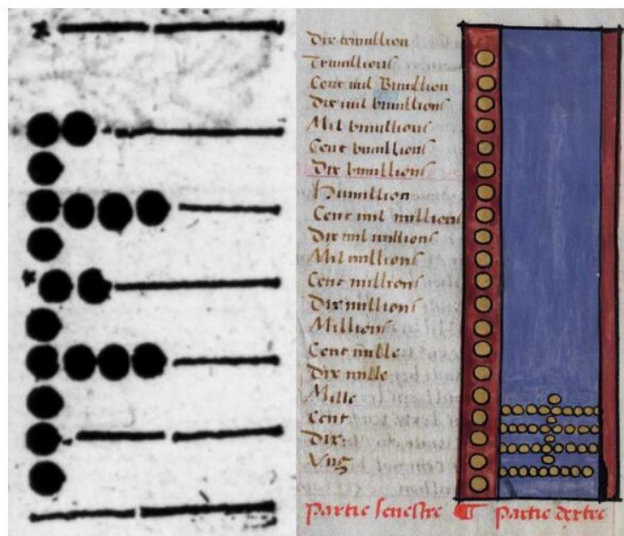 Dix trimillion
Trimillions
Cent mil Bimillion
Dix mil bimillions
Mil bimillions
Cent bimillions
Dix bimillions
Cent mil millions
Dix mil millions
Mil millions
Cent millions
Dix millions
Millions
Cent mille
Dix mille
Mille
Cent
Dix:
Vng
Partie senestre ¶ Partie dextre